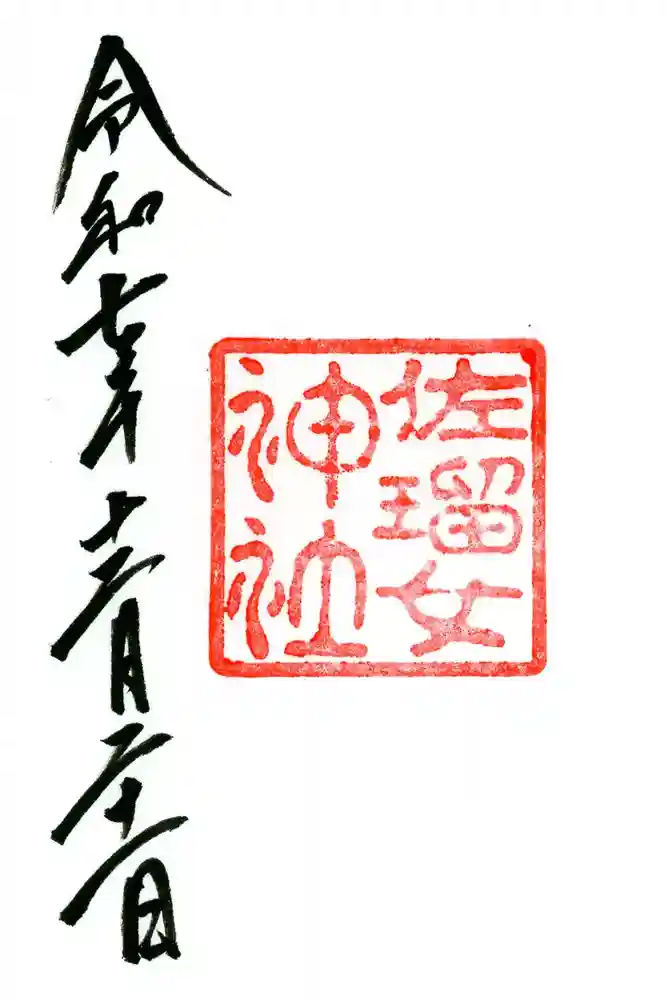 佐瑠女
神社
令和七年十二月二十一日